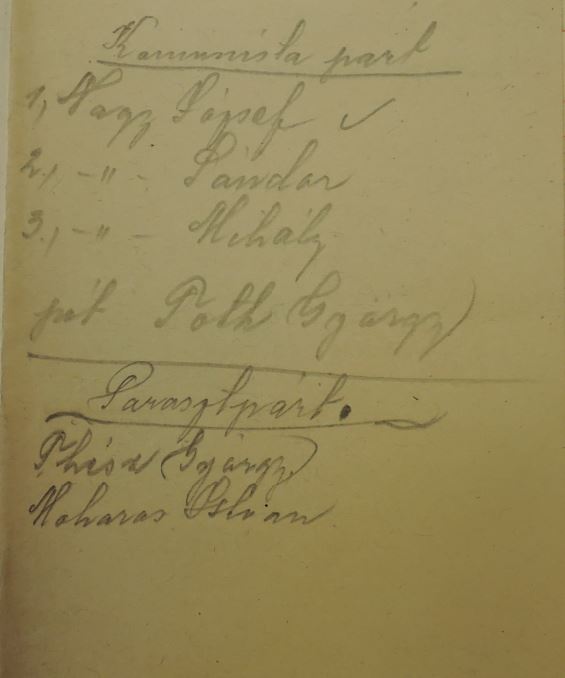 Komunista párt
1, Nagy József ✓
2., -"- Sándor
3., -"- Mihály
pót Toth György
Parasztpárt.
Thisa György
Moharos István